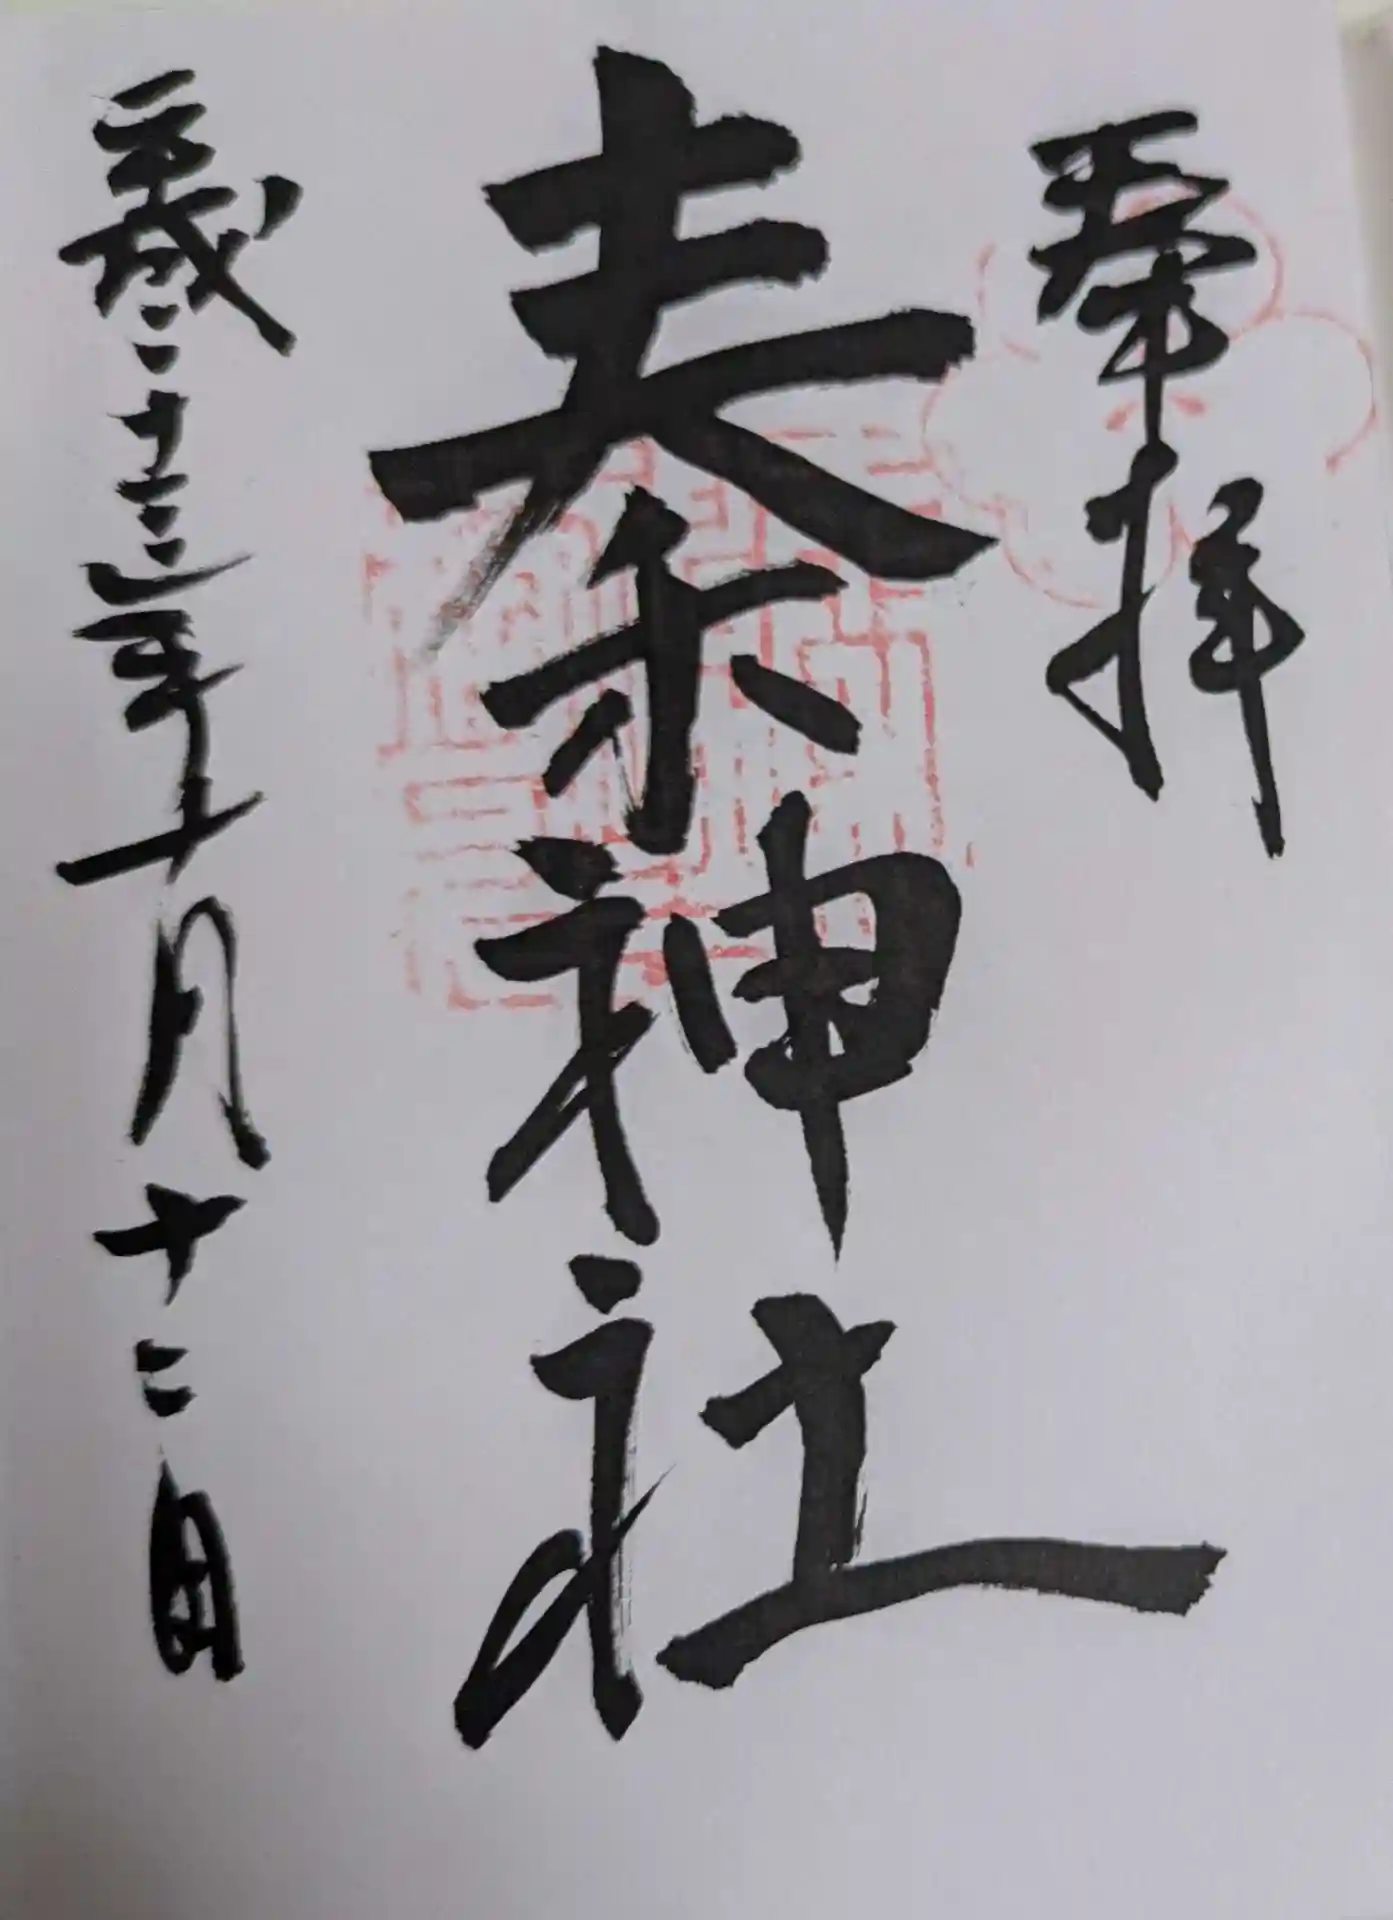 奉拝
秦神社
平成二十三年十月十二日